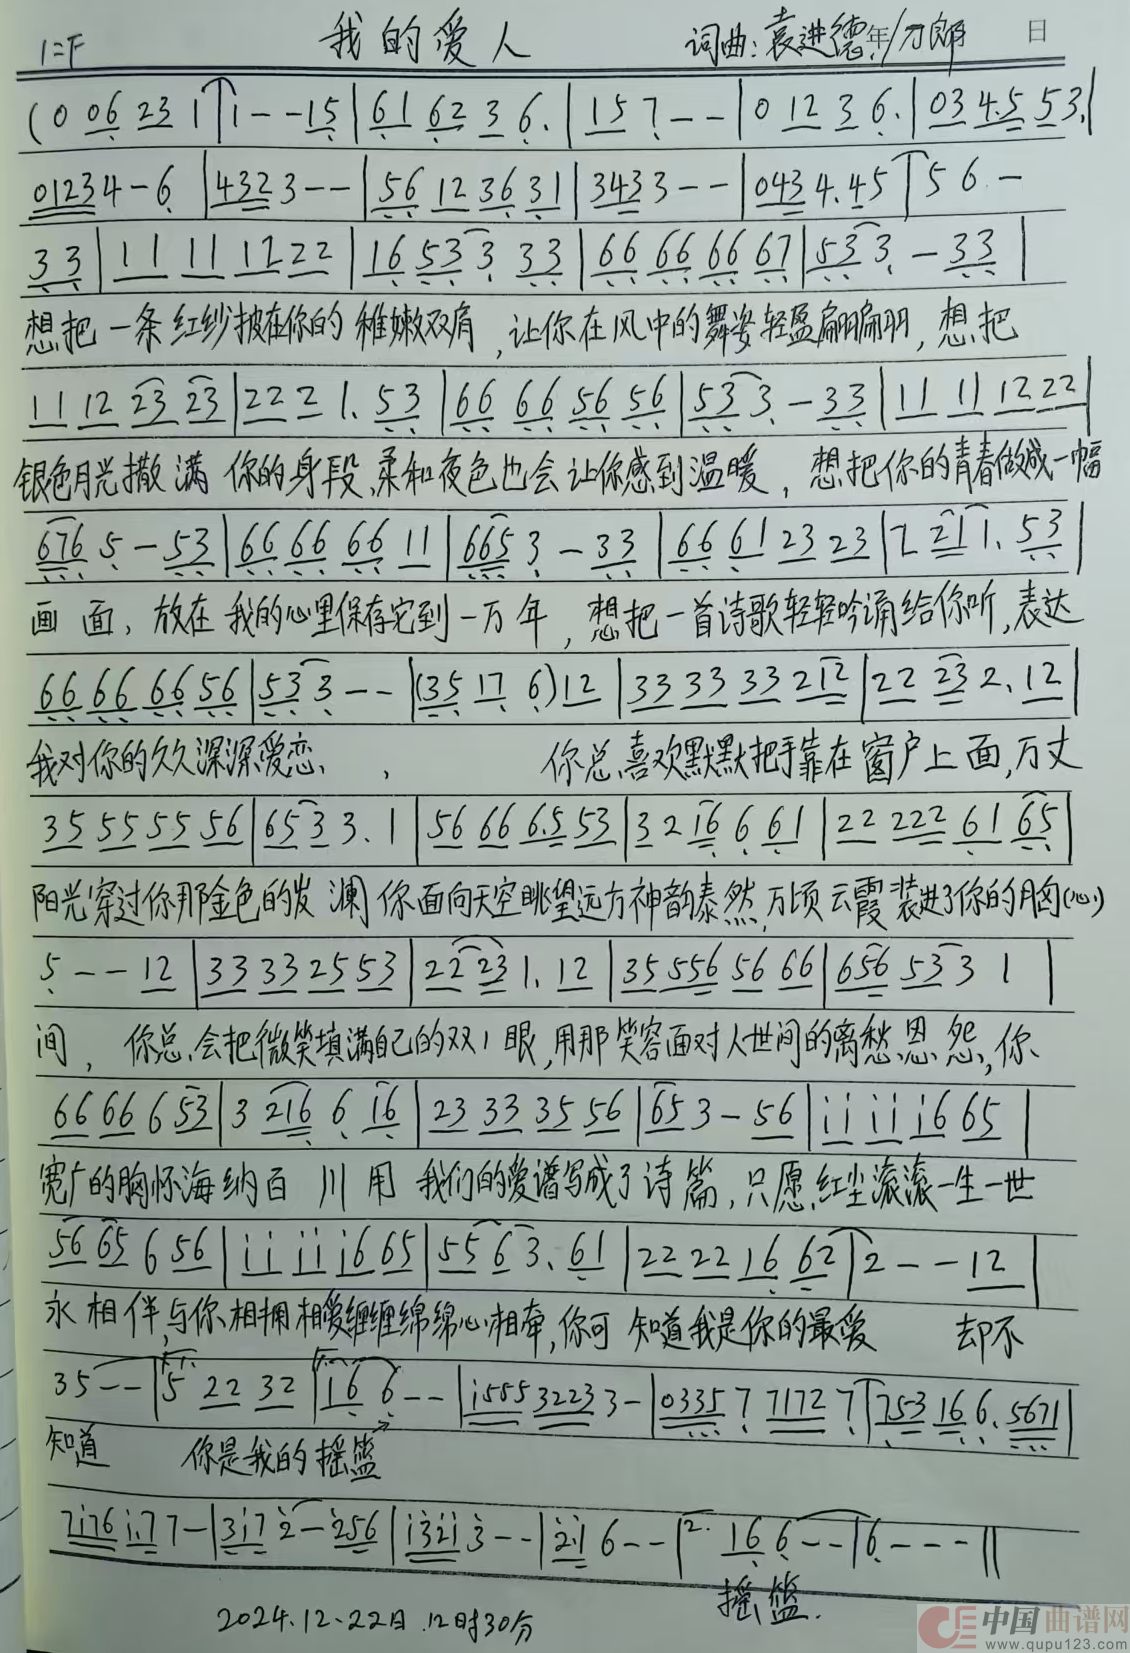 1=F 我的爱人 词曲:袁进德 年/刀郎 日
(0 06 23 1 | 1 - - 15 | 61 62 3 6. | 15 7 - - | 0 12 3 6. | 03 4.5 53. |
01234 - 6 | 432 3 - - | 56 12 36 31 | 343 3 - - | 043 4.45 | 5 6. -
33 | 11 11 12 22 | 16 53 3 33 | 66 66 66 67 | 53 3. - 33 |
想把一条红纱披在你的稚嫩双肩,让你在风中的舞姿轻盈翩翩,想把
11 12 23 23 | 22 2 1. 53 | 66 66 56 56 | 53 3 - 33 | 11 11 12 22 |
银色月光撒满你的身段,柔和夜色也会让你感到温暖,想把你的青春做成一幅
676 5 - 53 | 66 66 66 11 | 665 3 - 33 | 66 61 23 23 | 2 21 1. 53 |
画面,放在我的心里保存它到一万年,想把一首诗歌轻轻吟诵给你听,表达
66 66 66 56 | 53 3 - - | (35 17 6) 12 | 33 33 33 212 | 22 23 2. 12 |
我对你的久久深深爱恋、,你总喜欢默默把手靠在窗户上面,万丈
35 55 55 56 | 65 3 3. 1 | 56 66 6.5 53 | 3 2 16 6 61 | 22 222 61 65 |
阳光穿过你那金色的发澜你面向天空眺望远方神韵泰然,万顷云霞装进了你的胸(心)
5 - - 12 | 33 33 25 53 | 22 23 1. 12 | 35 556 56 66 | 656 53 3 1 |
间,你总会把微笑填满自己的双眼,用那笑容面对人世间的离愁恩怨,你
66 66 6 53 | 3 216 6 16 | 23 33 35 56 | 65 3 - 56 | i i i i i 6 65 |
宽广的胸怀海纳百川用我们的爱谱写成了诗篇,只愿红尘滚滚一生一世
56 65 6 56 | i i i i i 6 65 | 55 6 3. 61 | 22 22 16 62 | 2 - - 12 |
永相伴,与你相拥相爱缠缠绵绵心相牵,你可知道我是你的最爱 却不
35 - - | 5 22 32 | 16 6 - - | i555 3223 3 - | 0335 7 7172 7 | 753 16 6. 5671 |
知道 你是我的摇篮
7i76 i.7 7 - | 3i7 2 - 256 | i32i 3 - - | 2.i 6 - - | 2. 16 6 - - | 6 - - - ||
摇篮.
2024.12.22日.12时30分
中国曲谱网
www.qupu123.com